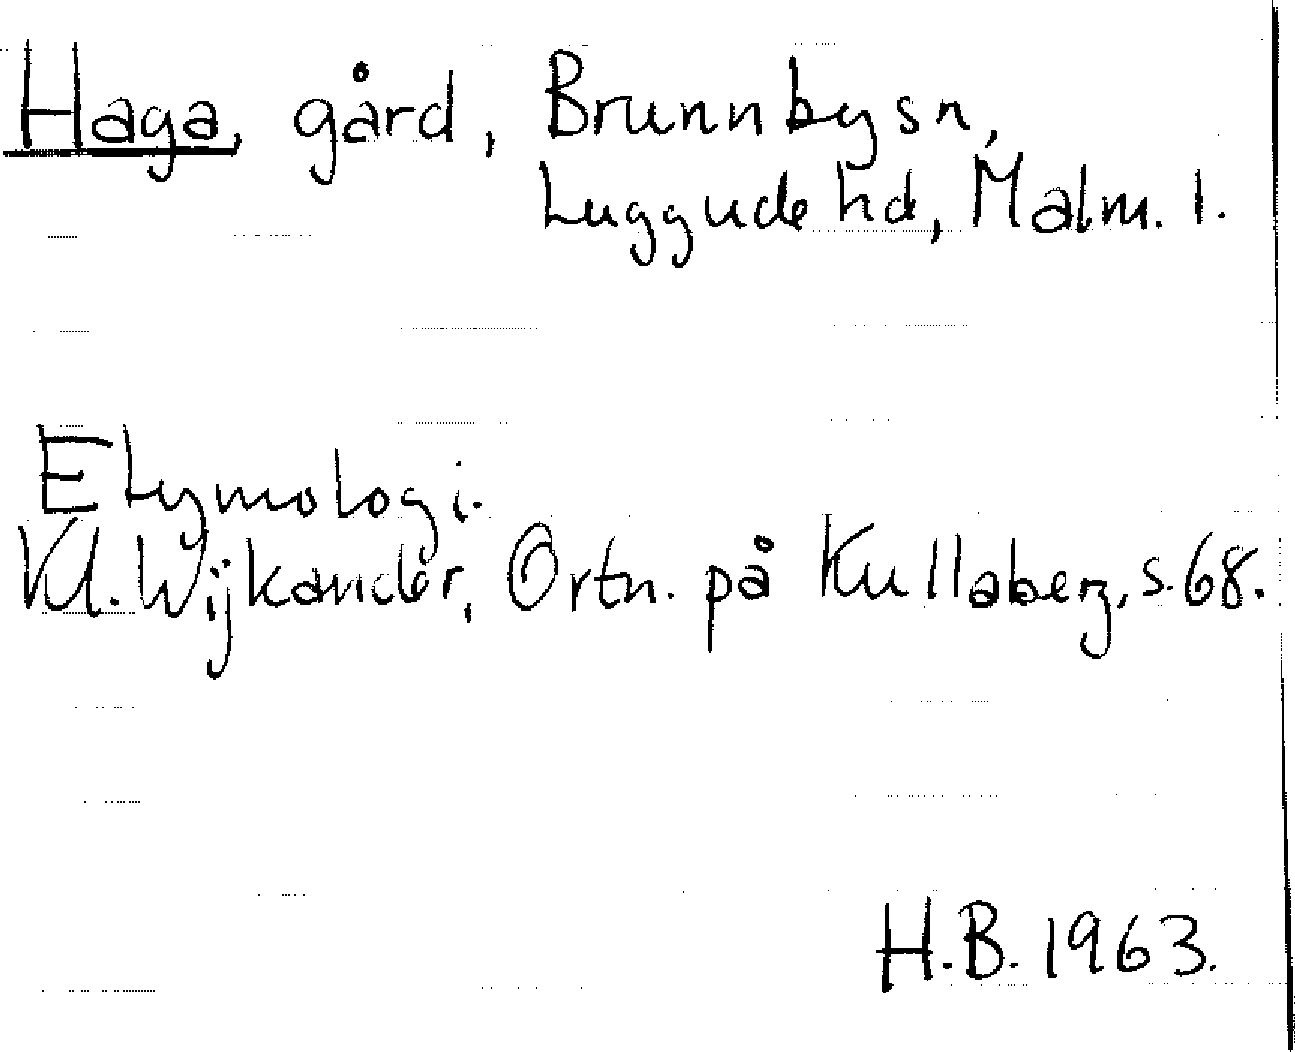 Haga, gård, Brunnby sn,
Luggude hd, Malm. l.
Etymologi.
Kl. Wijkander, Ortn. på Kullaberg, s. 68.
H.B. 1963.